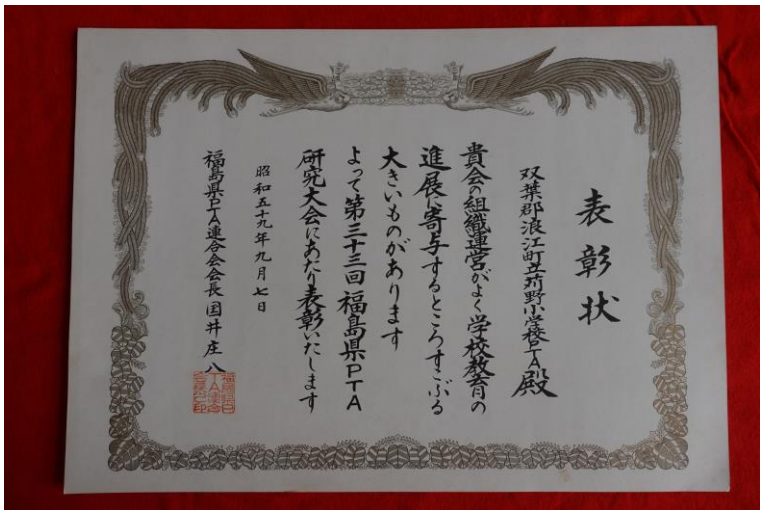 表彰状
双葉郡浪江町立苅野小学校PTA殿
貴会の組織運営がよく学校教育の
進展に寄与するところすこぶる
大きいものがあります
よって第三十三回福島県PTA
研究大会にあたり表彰いたします
昭和五十九年九月七日
福島県PTA連合会会長国井庄八